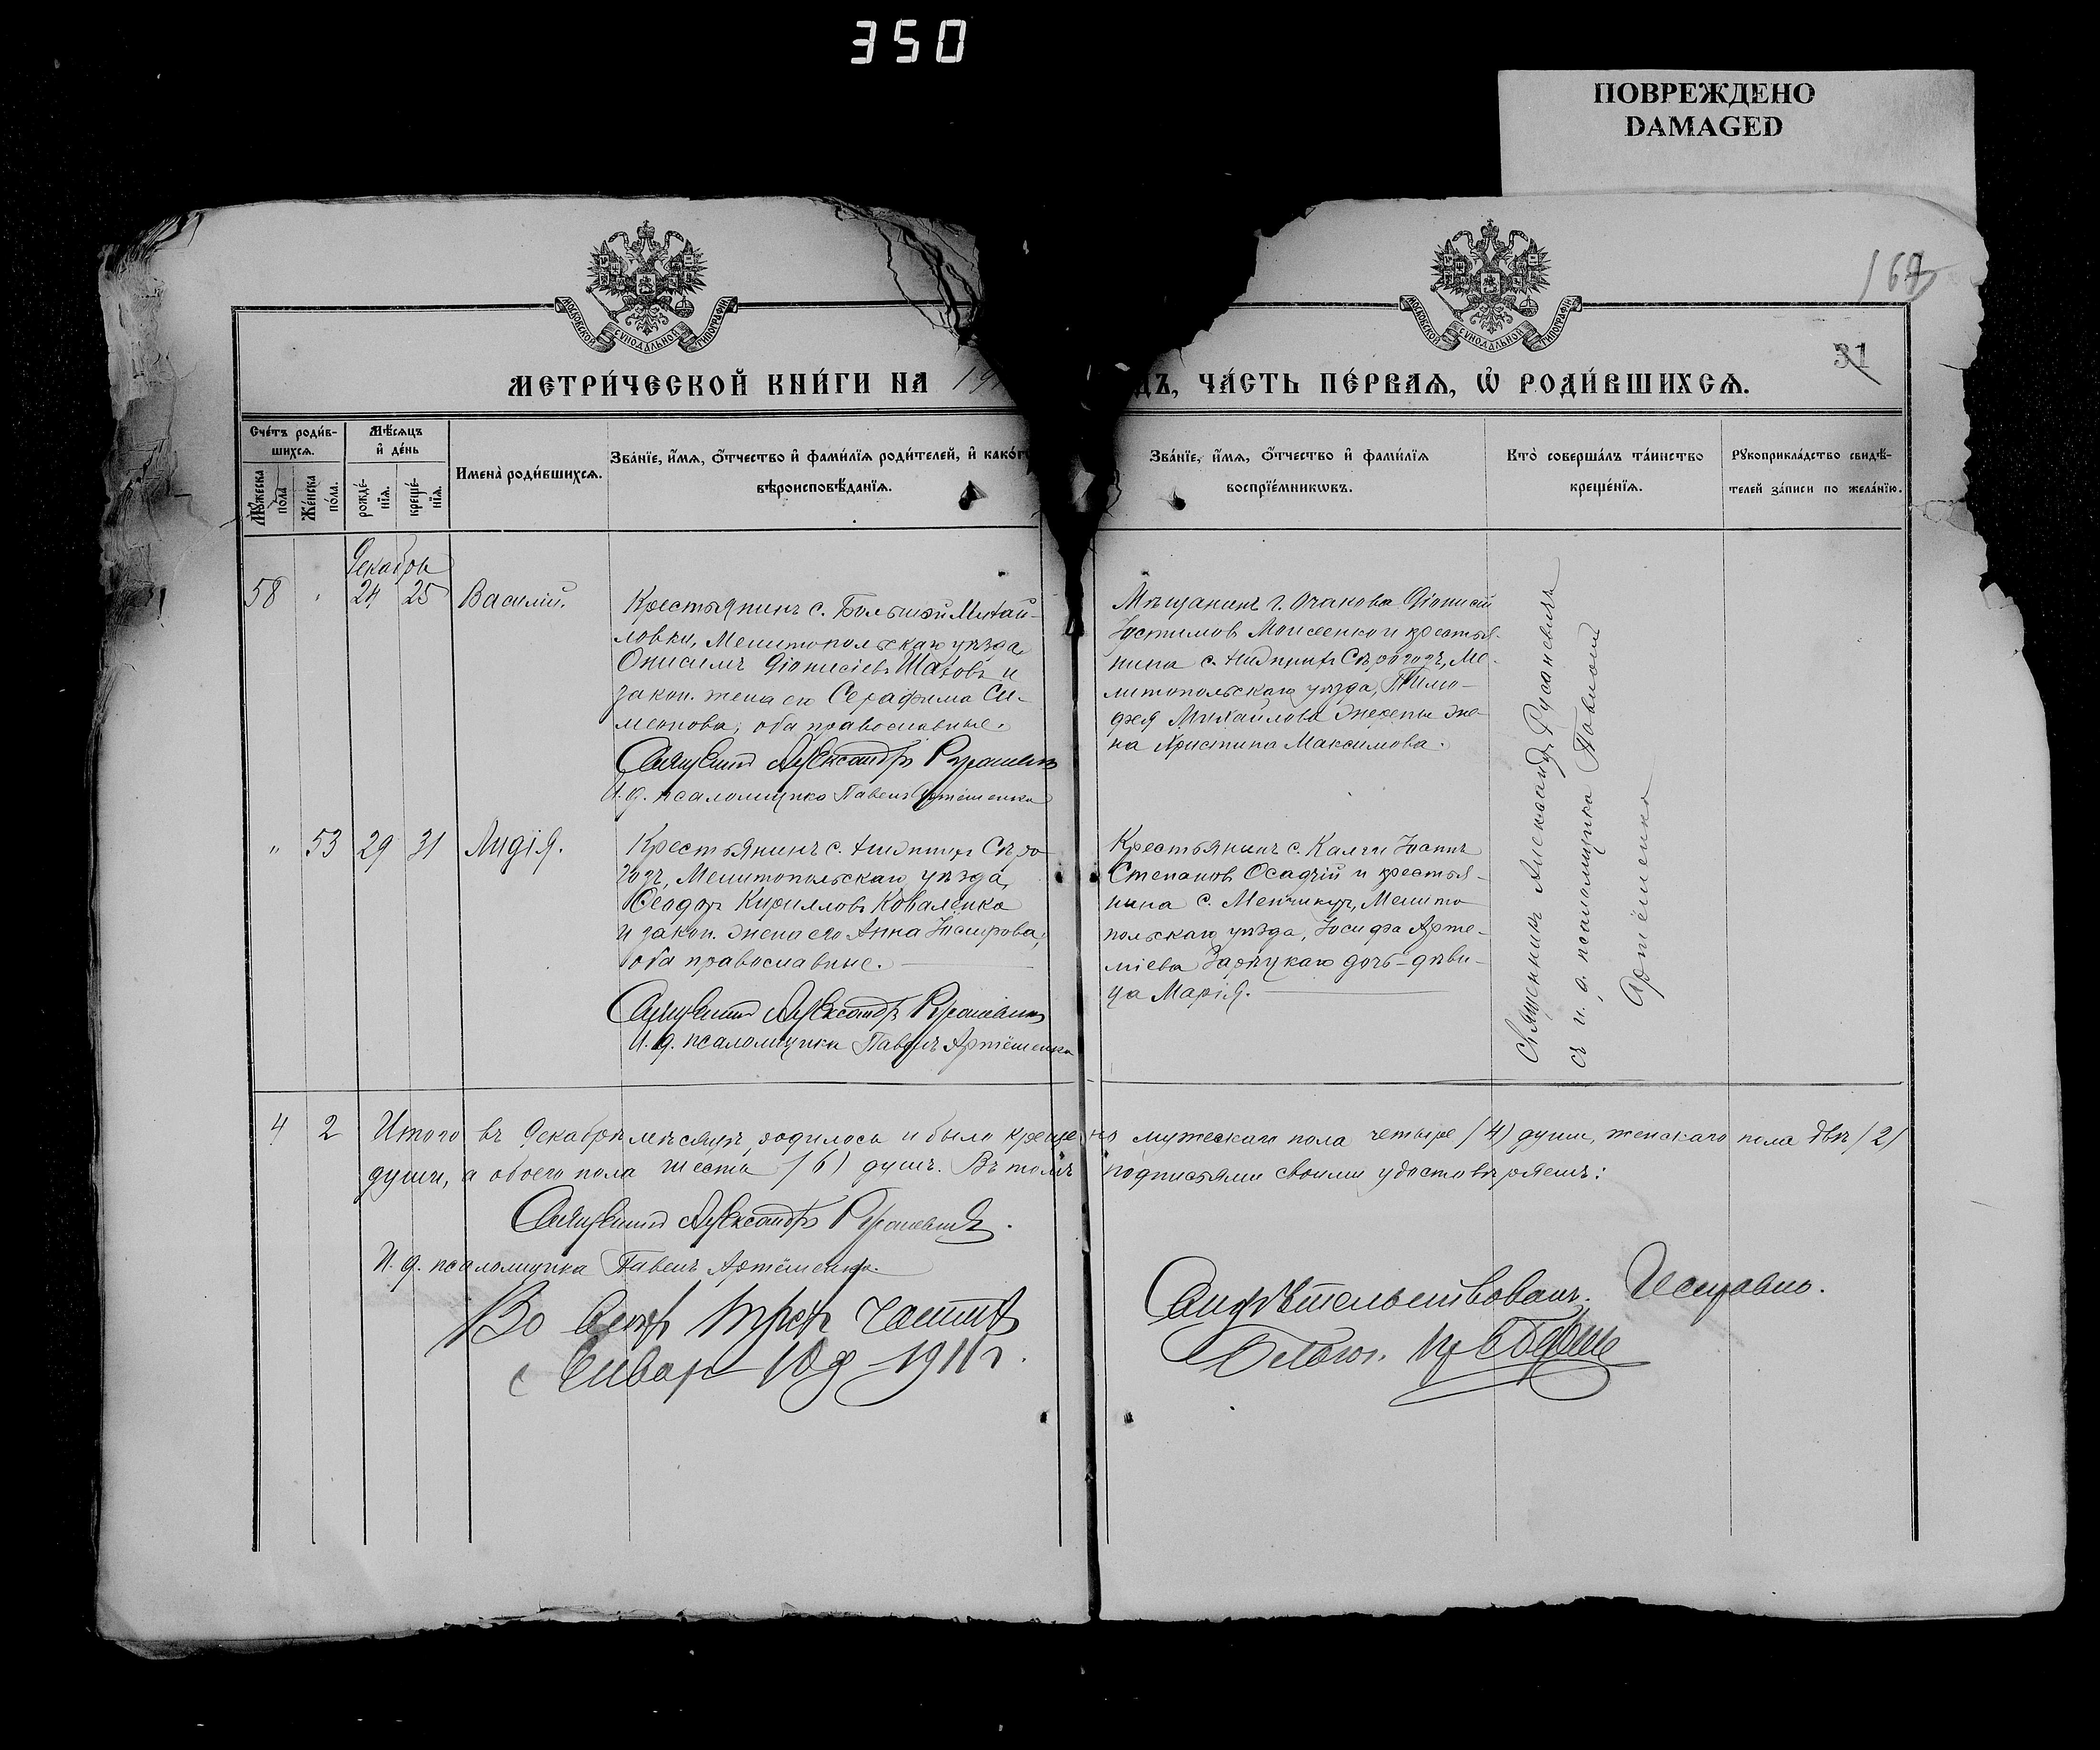 350
ПОВРЕЖДЕНО
DAMAGED
167
31
МОСКОВСКОЙ СѴНОДАЛЬНОЙ ТИПОГРАФІИ
МОСКОВСКОЙ СѴНОДАЛЬНОЙ ТИПОГРАФІИ
МЕТРИ́ЧЕСКОЙ КНИ́ГИ НА 19
ДЪ, ЧА́СТЬ ПЕ́РВАЯ, Ѡ РОДИ́ВШИХСЯ.
Сче́тъ роди́в-
шихся.
Мѣ́сяцъ
и҆ де́нь
Мꙋ́жеска
по́ла
Же́нска
по́ла.
рожде́-
нїя.
креще́-
нїя.
И҆мена̀ роди́вшихся.
Зва́нїе, и҆́мя, ѻ҆́тчество и҆ фами́лїя роди́телей, и҆ како́г
вѣроисповѣ́данїя.
Зва́нїе, и҆́мя, ѻ҆́тчество и҆ фами́лїя
воспрїе́мникѡвъ.
Кто̀ соверша́лъ та́инство
креще́нїя.
Рꙋкоприкла́дство свидѣ́-
телей за́писи по жела́нїю.
Декабрь
58 " 24 25 Василій.
Крестьянинъ с. Большой Михай-
ловки, Мелитопольскаго уѣзда
Онисимъ Діонисіевъ Шаховъ и
закон. жена его Серафима Си-
меонова, оба православные.
Священникъ Александръ Русаневичъ
И. д. псаломщика Павелъ Артёменко
Мѣщанинъ г. Очакова Діонисій
Іустиновъ Моисеенко и крестья-
нина с. Нижнихъ Сѣрогозъ, Ме-
литопольскаго уѣзда, Тимо-
фея Михайлова Жерепы же-
на Христина Максимова.
Священникъ Александръ Русаневичъ
съ и. д. псаломщика Павломъ
Артёменко
" 53 29 31 Лидія.
Крестьянинъ с. Нижнихъ Сѣро-
гозъ, Мелитопольскаго уѣзда,
Ѳеодоръ Кирилловъ Коваленко
и закон. жена его Анна Іосифова,
оба православные.
Священникъ Александръ Русаневичъ
И. д. псаломщика Павелъ Артёменко
Крестьянинъ с. Калги Іосифъ
Степановъ Осадчій и крестья-
нина с. Менчикуръ, Мелито-
польскаго уѣзда, Іосифа Арте-
міева Зарѣцкаго дочь-дѣви-
ца Марія.
4 2 Итого въ Декабрѣ мѣсяцѣ родилось и было крещено мужескаго пола четыре /4/ души, женскаго пола двѣ /2/
души, а обоего пола шесть /6/ душъ. Въ томъ подписями своими удостовѣряемъ:
Священникъ Александръ Русаневичъ.
И. д. псаломщика Павелъ Артёменко.
Во всѣхъ трехъ частяхъ
Январ 10 д 1911 г.
Свидѣтельствовалъ. Исправно.